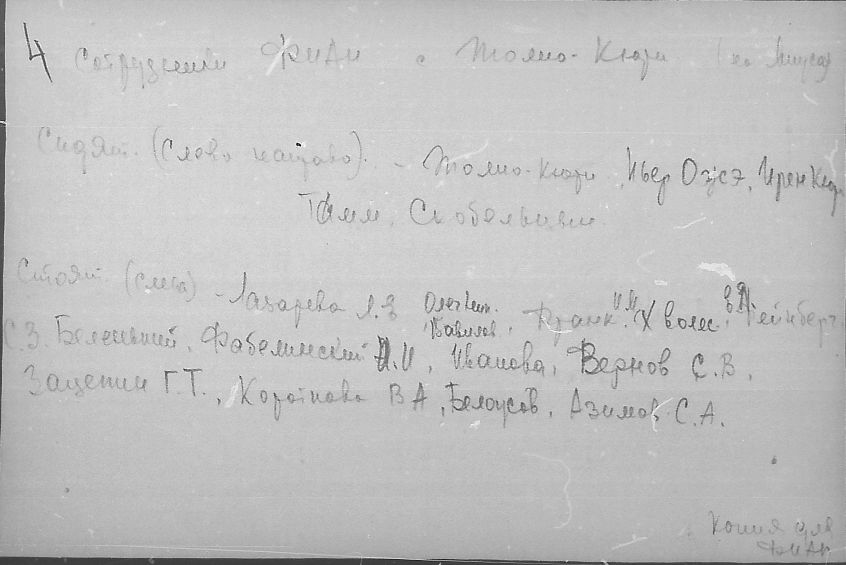 4 Сотрудники ФИАН с Жолио-Кюри (на Миусах)
Сидят. (Слева направо). - Жолио-Кюри, Пьер Оже, Ирен Кюри
Тамм, Скобельцын.
Стоят. (слева) - Лазарева Л.Е Олег Ник. Вавилов, Франк И.М. Хволес, Гейнберг
С.З. Беленький, Фабелинский И.Л, Иванова, Вернов С.В,
Зацепин Г.Т., Короткова В А, Белоусов, Азимов С.А.
Копия для
ФИАН